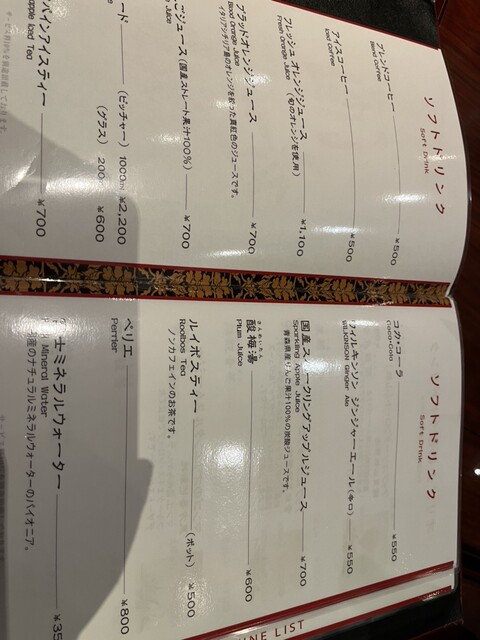 ソフトドリンク
Soft Drink
ブレンドコーヒー ¥500
Blend Coffee
アイスコーヒー ¥500
Iced Coffee
フレッシュ オレンジジュース (旬のオレンジを使用) ¥1,100
Fresh Orange Juice
ブラッドオレンジジュース ¥700
Blood Orange Juice
イタリアシチリア島のオレンジを搾った真紅色のジュースです。
ごジュース(国産ストレート果汁100%) ¥700
Juice
ード (ピッチャー) 1000ml ¥2,200
(グラス) 200ml ¥600
パインアイスティー ¥700
apple Iced Tea
ソフトドリンク
Soft Drink
コカ・コーラ ¥550
Coca-Cola
ウィルキンソン ジンジャーエール(辛口) ¥550
WILKINSON Ginger Ale
国産スパークリングアップルジュース ¥700
Sparkling Apple Juice
青森県産りんご果汁100%の炭酸ジュースです。
酸梅湯 ¥600
Plum Juice
ルイボスティー (ポット) ¥500
Rooibos Tea
ノンカフェインのお茶です。
ペリエ ¥800
Perrier
士ミネラルウォーター ¥35
Mineral Water
産のナチュラルミネラルウォーターのパイオニア。
INE LIST